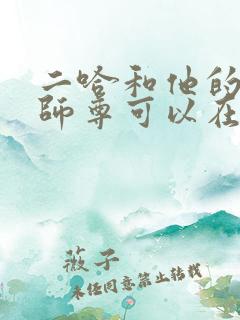 二哈和他的
師尊可以在
薇子
未经同意禁止转载